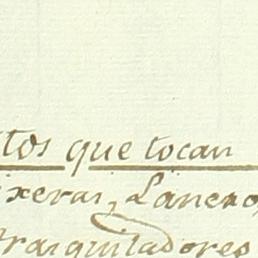 tos que tocan
xeras, Lanero,
Trasquiladores